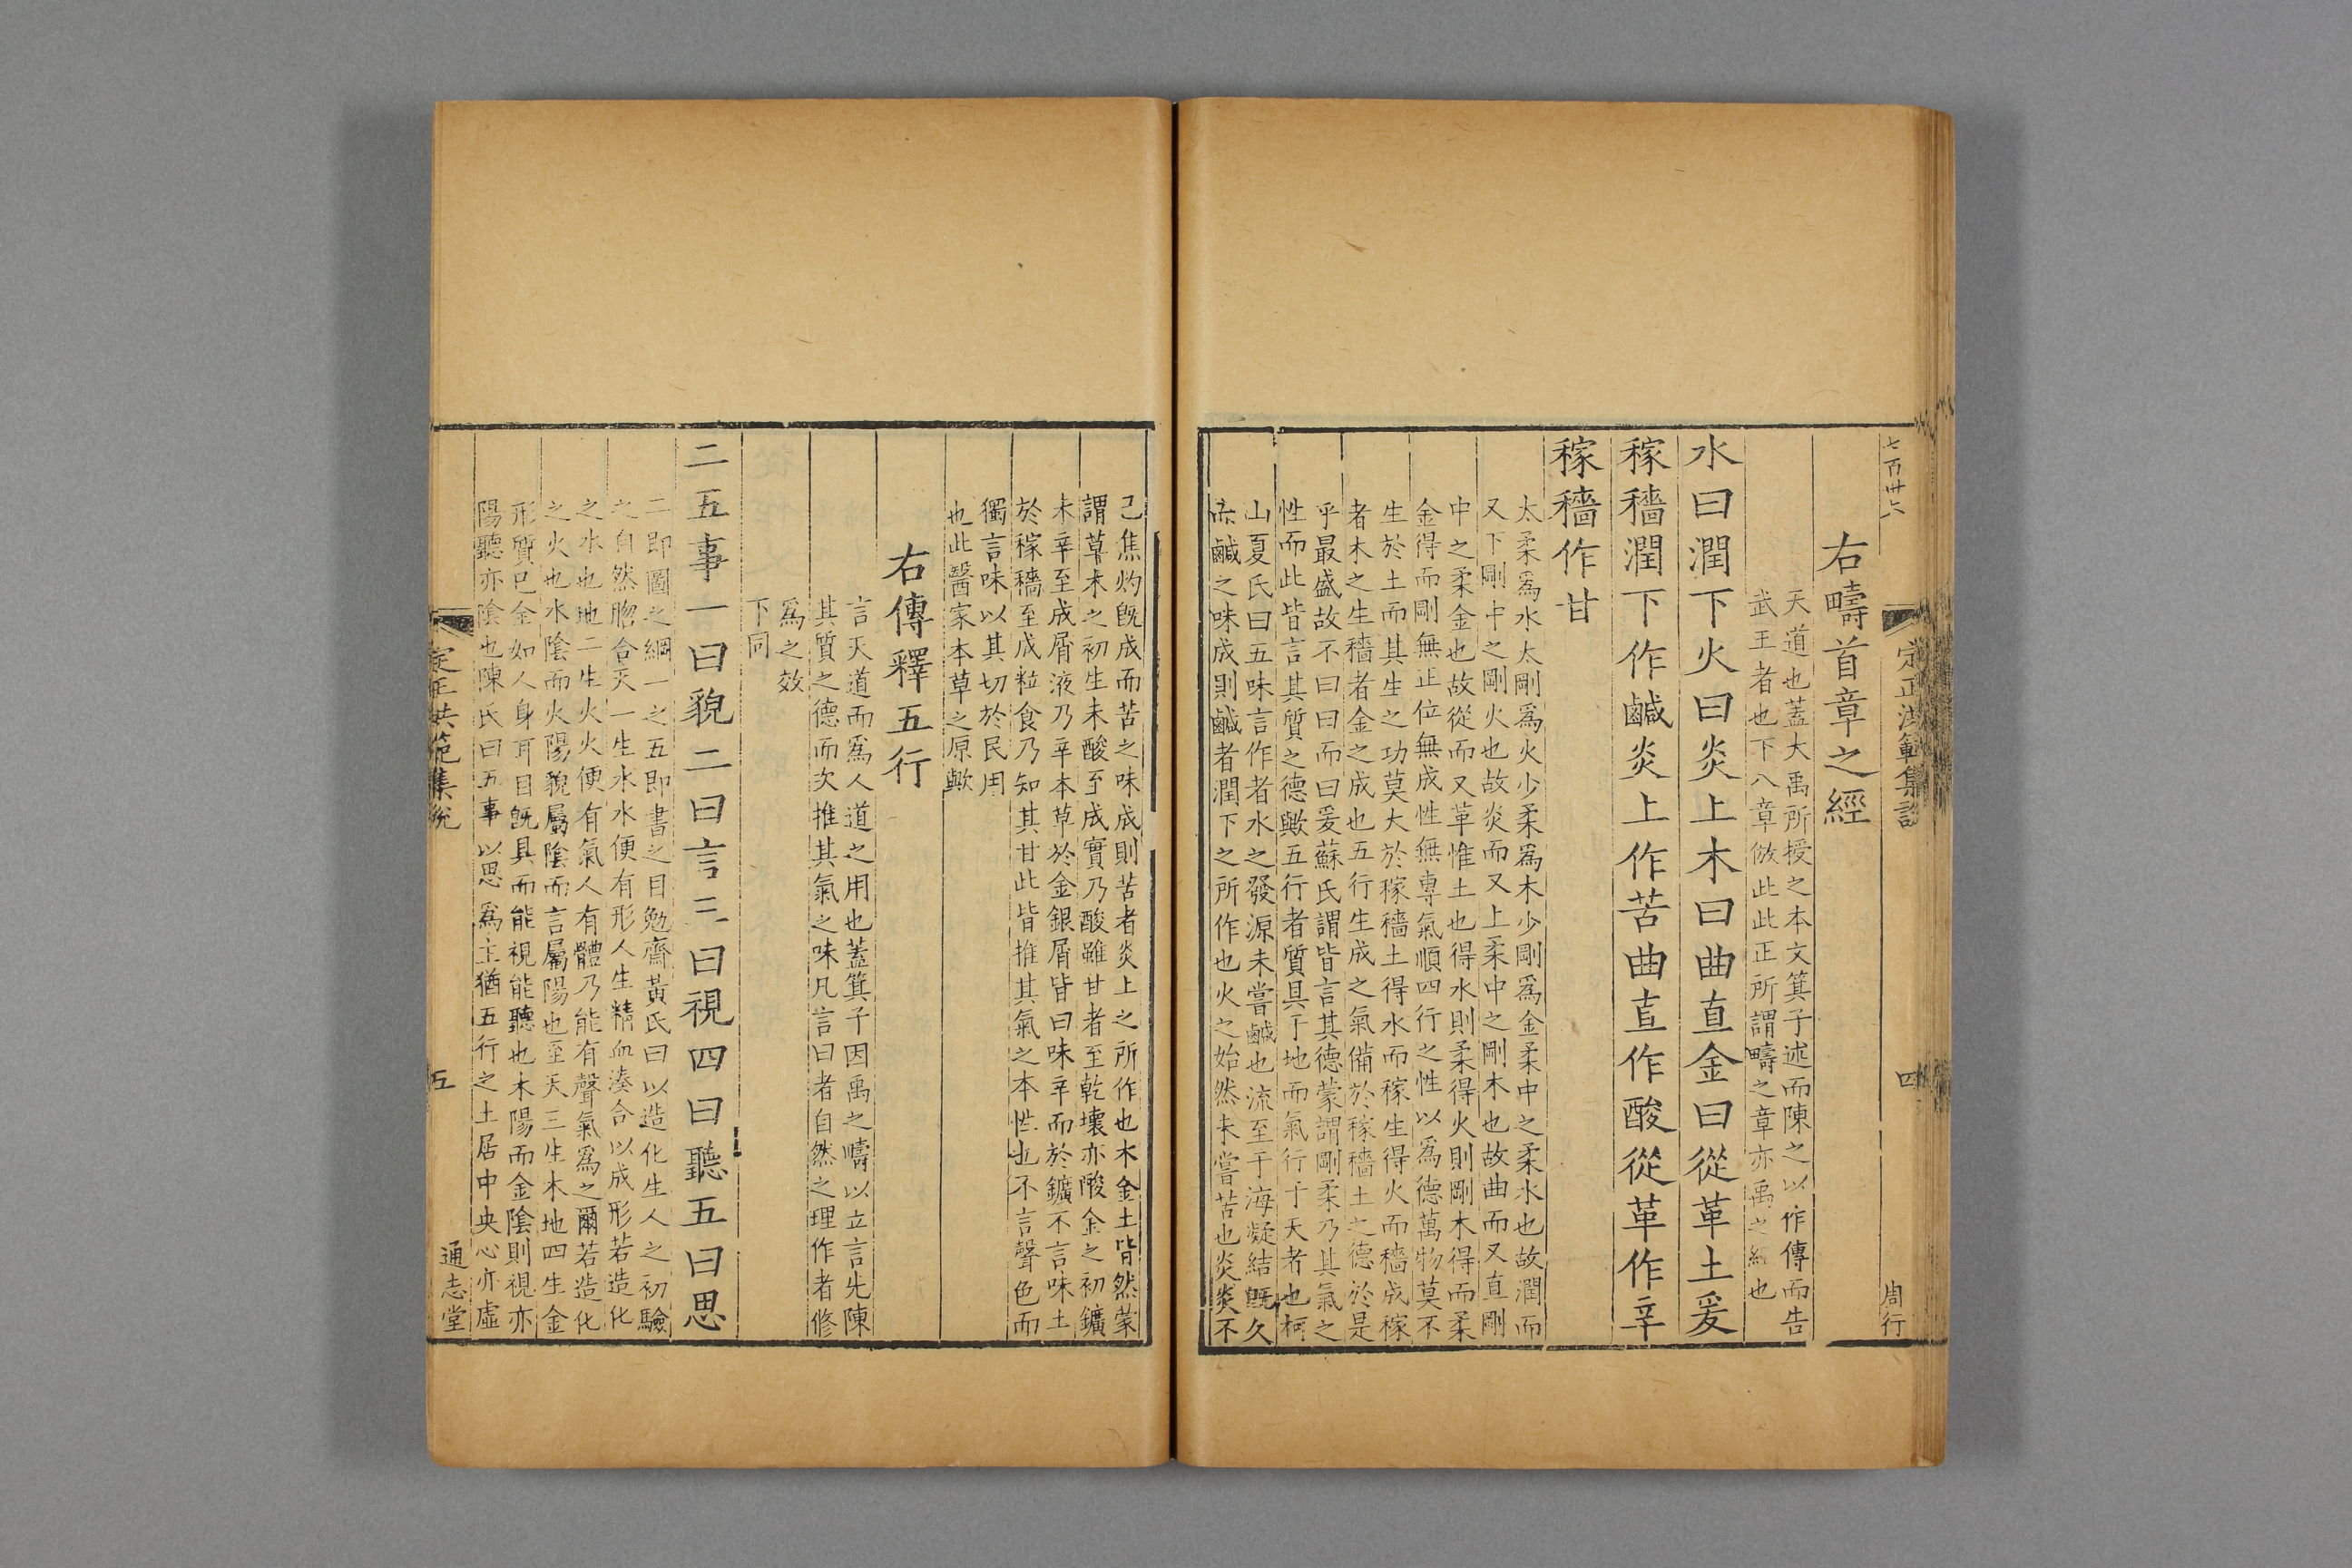 七百卅六
定正洪範集說
四
周行
右疇首章之經
天道也蓋大禹所授之本文箕子述而陳之以作傳而告
武王者也下八章倣此此正所謂疇之章亦禹之經也
水曰潤下火曰炎上木曰曲直金曰從革土爰
稼穡潤下作鹹炎上作苦曲直作酸從革作辛
稼穡作甘
太柔爲水太剛爲火少柔爲木少剛爲金柔中之柔水也故潤而
又下剛中之剛火也故炎而又上柔中之剛木也故曲而又直剛
中之柔金也故從而又革惟土也得水則柔得火則剛木得而柔
金得而剛無正位無成性無專氣順四行之性以爲德萬物莫不
生於土而其生之功莫大於稼穡土得水而稼生得火而穡成稼
者木之生穡者金之成也五行生成之氣備於稼穡土之德於是
乎最盛故不曰曰而曰爰蘇氏謂皆言其德蒙謂剛柔乃其氣之
性而此皆言其質之德歟五行者質具于地而氣行于天者也柯
山夏氏曰五味言作者水之發源未嘗鹹也流至于海凝結旣久
鹹之味成則鹹者潤下之所作也火之始然未嘗苦也炎炎不
已焦灼旣成而苦之味成則苦者炎上之所作也木金土皆然蒙
謂草木之初生未酸至成實乃酸雖甘者至乾壞亦酸金之初鑛
未辛至成屑液乃辛本草於金銀屑皆曰味辛而於鑛不言味土
於稼穡至成粒食乃知其甘此皆推其氣之本性也不言聲色而
獨言味以其切於民用
也此醫家本草之原歟
右傳釋五行
言天道而爲人道之用也蓋箕子因禹之疇以立言先陳
其質之德而次推其氣之味凡言曰者自然之理作者修
爲之效
下同
二五事一曰貌二曰言三曰視四曰聽五曰思
二即圖之綱一之五即書之目勉齋黃氏曰以造化生人之初驗
之自然脗合天一生水水便有形人生精血湊合以成形若造化
之水也地二生火火便有氣人有體乃能有聲氣爲之爾若造化
之火也水陰而火陽貌屬陰而言屬陽也至天三生木地四生金
形質已全如人身耳目旣具而能視能聽也木陽而金陰則視亦
陽聽亦陰也陳氏曰五事以思爲主猶五行之土居中央心亦虛
定正洪範集說
五
通志堂